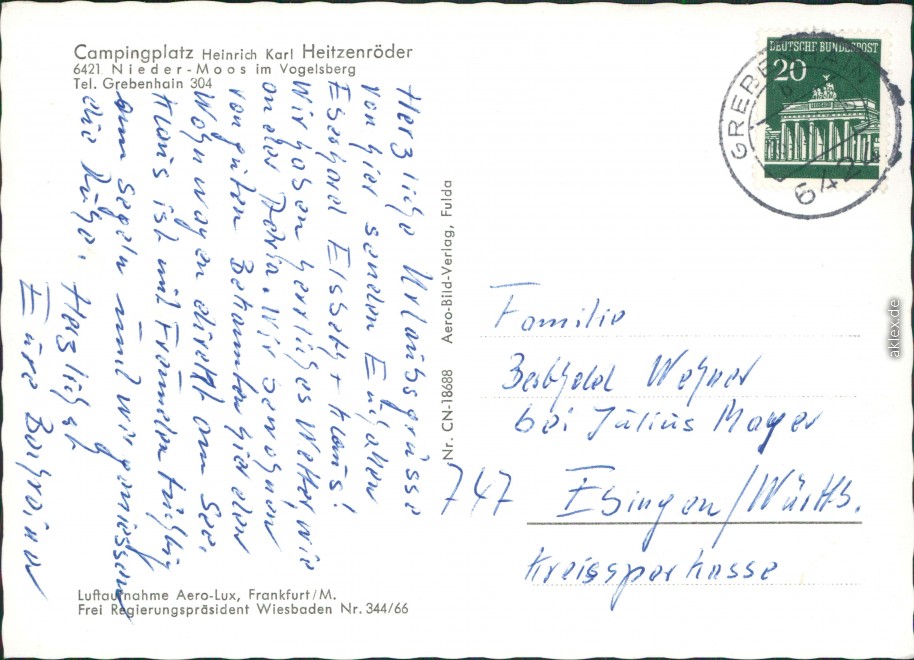 Campingplatz Heinrich Karl Heitzenröder
6421 Nieder-Moos im Vogelsberg
Tel. Grebenhain 304
Herzliche Urlaubsgrüsse
von hier senden Euch allen
Eberhard Elsbeth + Klaus!
Wir haben herrliches Wetter, wie
an der Adria. Wir bewohnen
von guten Bekannten hier den
Wohnwagen direkt am See.
Klaus ist mit Freunden tüchtig
am segeln und wir geniessen
die Ruhe. Herzlichst
Eure
Luftaufnahme Aero-Lux, Frankfurt/M.
Frei Regierungspräsident Wiesbaden Nr. 344/66
Nr. CN-18688 Aero-Bild-Verlag, Fulda
DEUTSCHE BUNDESPOST
20
GREBENHAIN
6424
Familie
Berthold Wehner
bei Julius Mayer
747 Ebingen/Württb.
Kreissparkasse
aklex.de